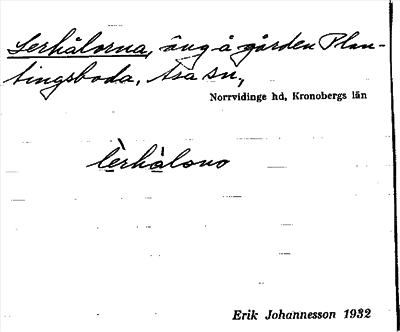 Lerhålorna, äng å gården Plan-
tingsboda, Asa sn,
Norrvidinge hd, Kronobergs län
lèrhàlono
Erik Johannesson 1932